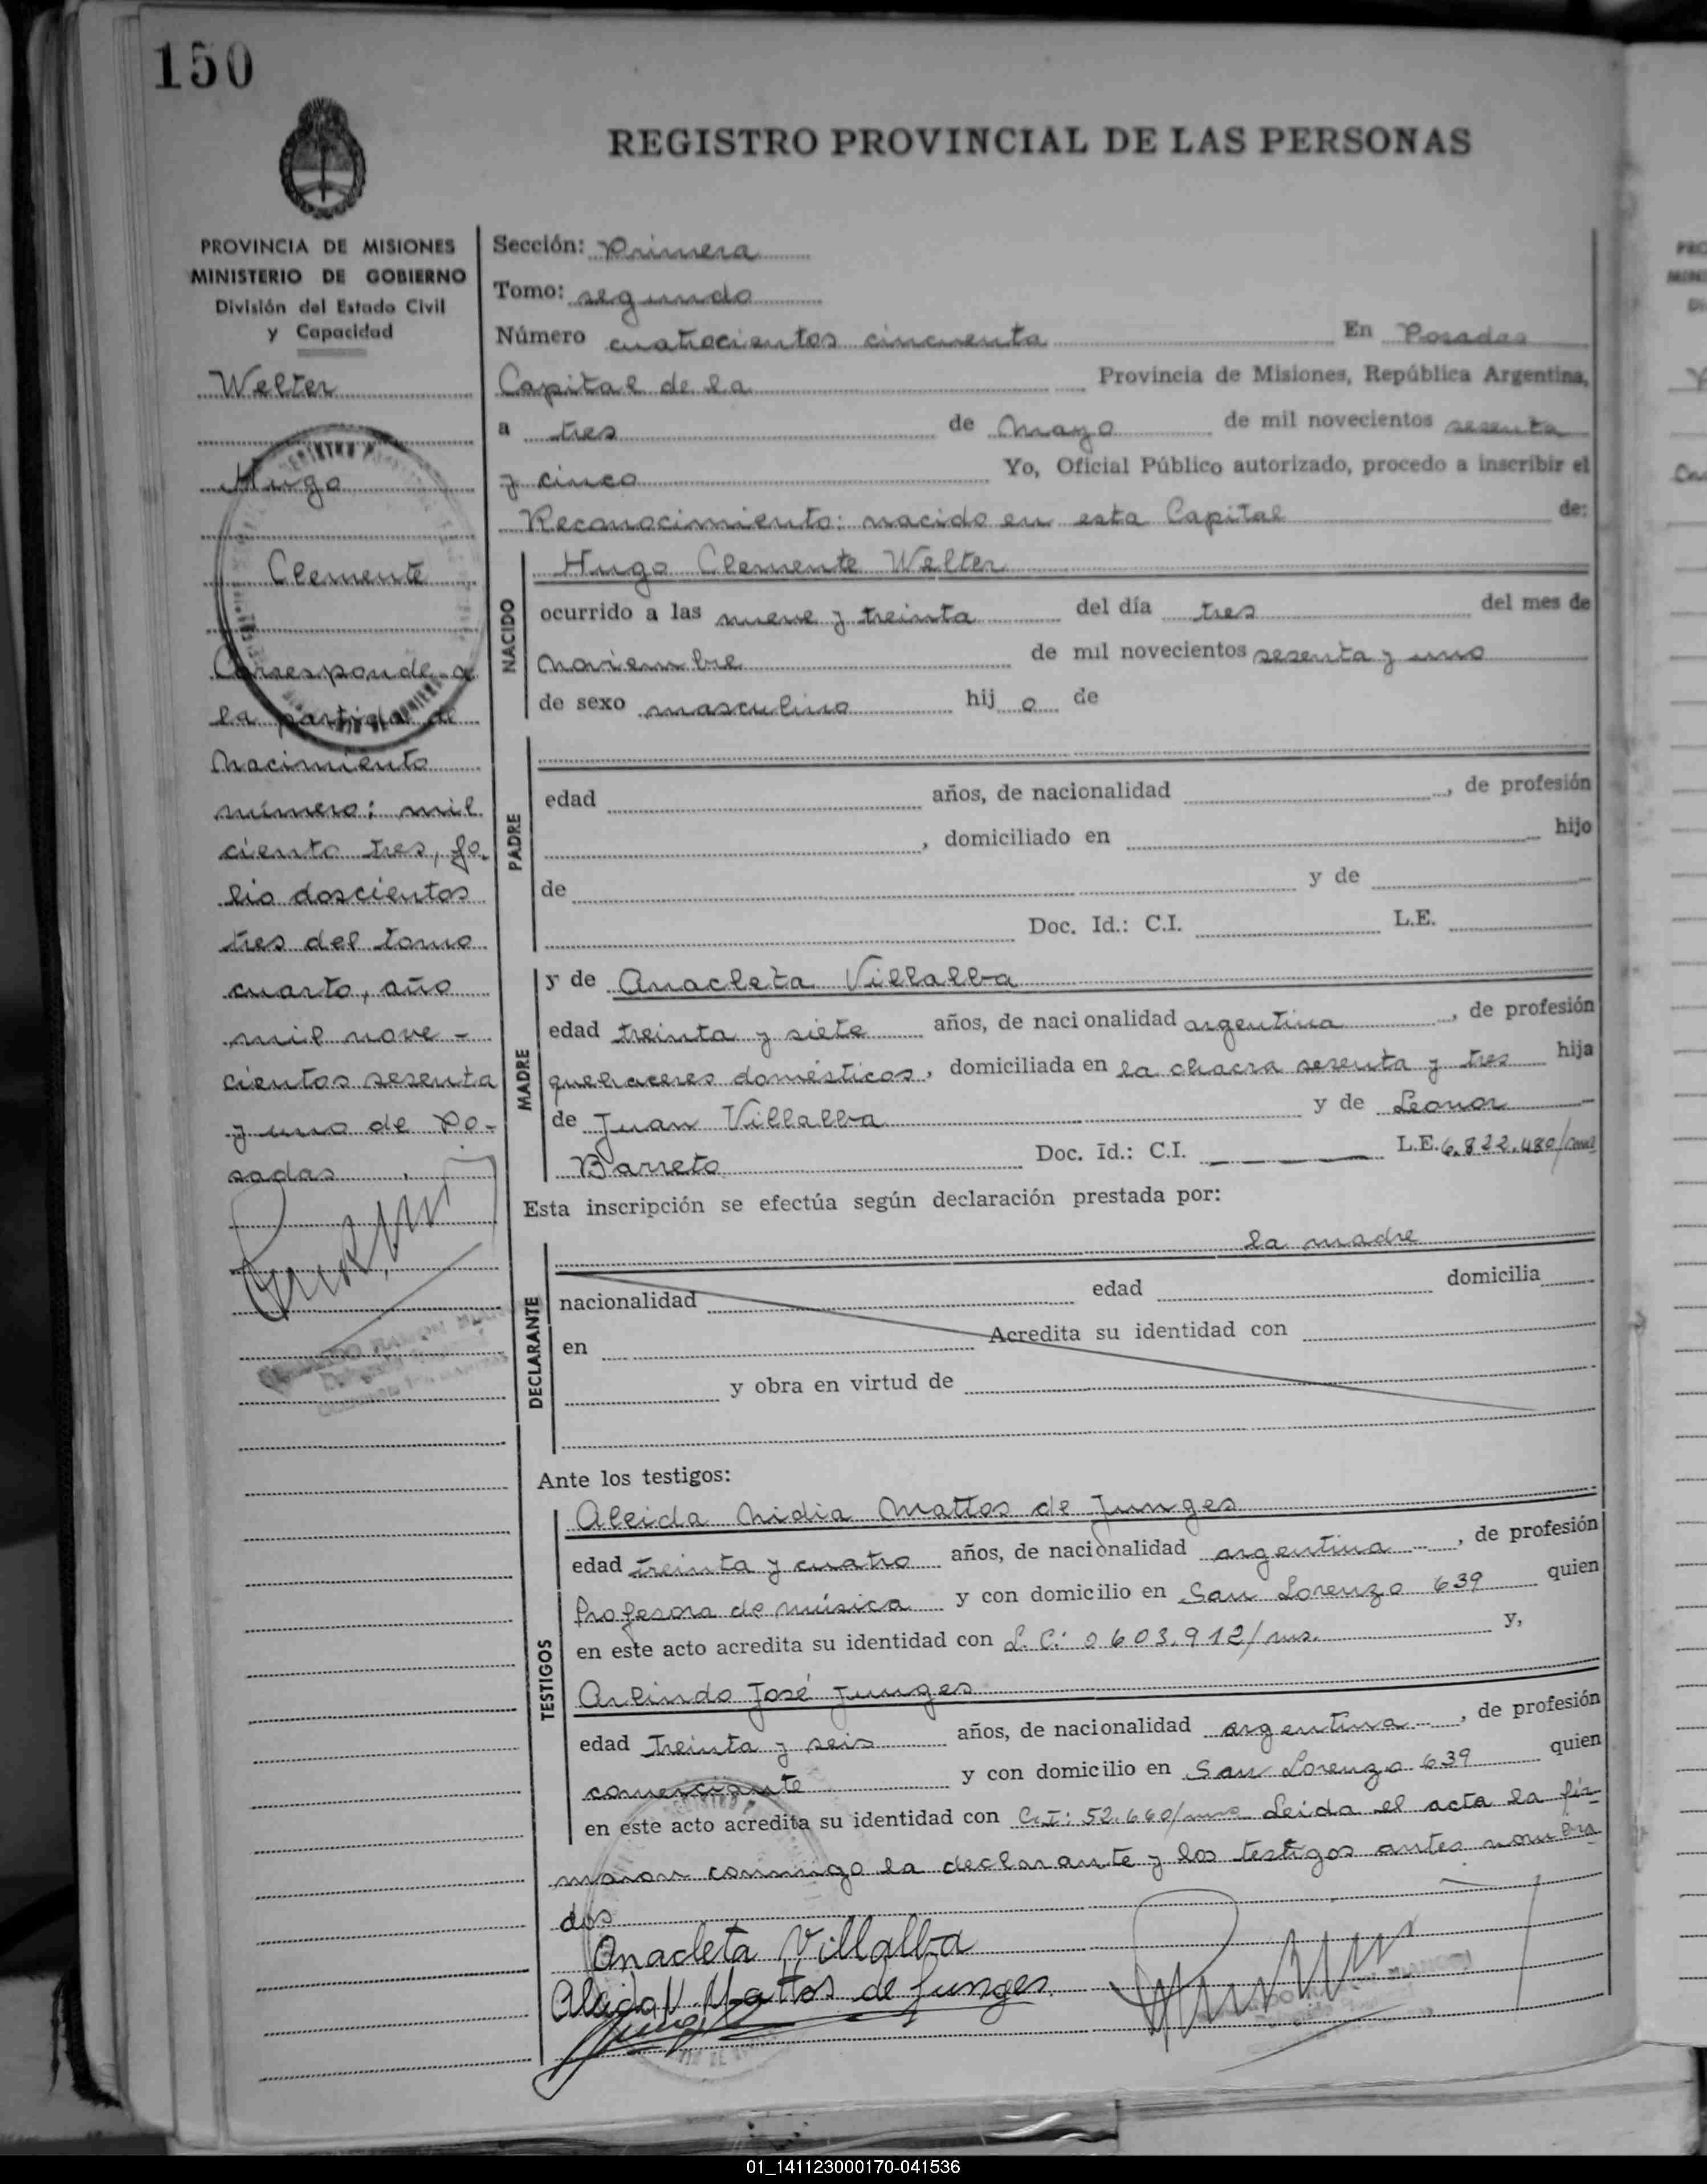 150
REGISTRO PROVINCIAL DE LAS PERSONAS
PROVINCIA DE MISIONES
MINISTERIO DE GOBIERNO
División del Estado Civil
y Capacidad
Welter
Hugo
Clemente
Corresponde a
la partida de
Nacimiento
número: mil
ciento tres, fo-
lio doscientos
tres del tomo
cuarto, año
mil nove-
cientos sesenta
y uno de Po-
sadas
Sección: Primera
Tomo: segundo
Número cuatrocientos cincuenta En Posadas
Capital de la Provincia de Misiones, República Argentina,
a tres de Mayo de mil novecientos sesenta
y cinco Yo, Oficial Público autorizado, procedo a inscribir el
Reconocimiento: nacido en esta Capital de:
NACIDO
Hugo Clemente Welter
ocurrido a las nueve y treinta del día tres del mes de
Noviembre de mil novecientos sesenta y uno
de sexo masculino hij o de
PADRE
edad años, de nacionalidad , de profesión
, domiciliado en hijo
de y de
Doc. Id.: C.I. L.E.
MADRE
y de Anacleta Villalba
edad treinta y siete años, de nacionalidad argentina , de profesión
quehaceres domésticos, domiciliada en la chacra sesenta y tres hija
de Juan Villalba y de Leonor
Barreto Doc. Id.: C.I. L.E. 6.822.480/
Esta inscripción se efectúa según declaración prestada por:
DECLARANTE
la madre
nacionalidad edad domicilia
en Acredita su identidad con
y obra en virtud de
Ante los testigos:
TESTIGOS
Aleida Nidia Mattos de Junges
edad treinta y cuatro años, de nacionalidad argentina , de profesión
Profesora de música y con domicilio en San Lorenzo 639 quien
en este acto acredita su identidad con L.C: 0603.912/ms. y,
Arlindo José Junges
edad treinta y seis años, de nacionalidad argentina , de profesión
comerciante y con domicilio en San Lorenzo 639 quien
en este acto acredita su identidad con C.I: 52.660/ Leida el acta la fir-
maron conmigo la declarante y los testigos antes nombra
dos
Anacleta Villalba
Aleida N. Mattos de Junges
01_141123000170-041536